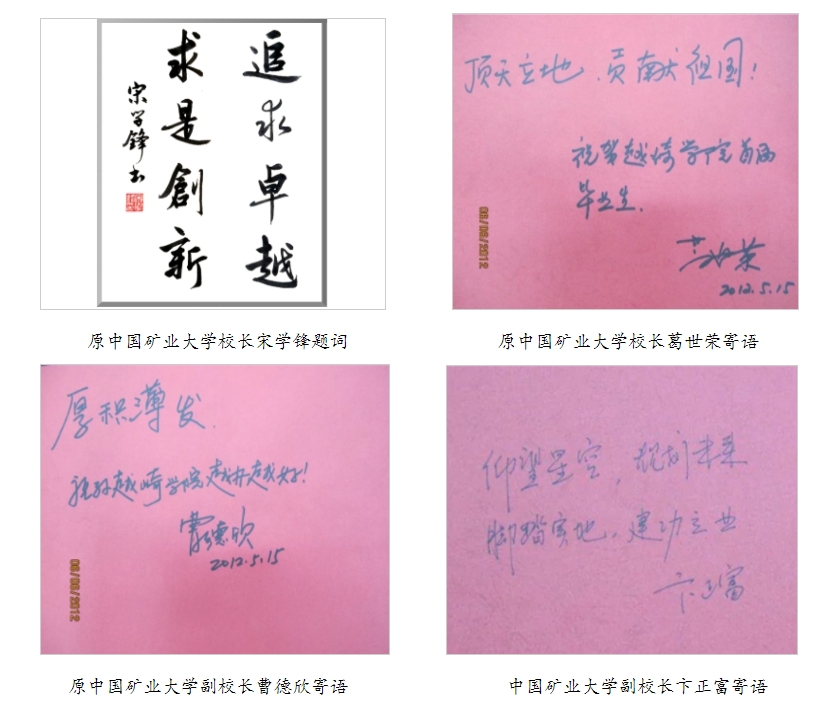 追求卓越
求是創新
宋学锋书
顶天立地、贡献祖国!
祝贺越崎学院首届
毕业生.
葛世荣
2012.5.15
08/08/2012
原中国矿业大学校长宋学锋题词
原中国矿业大学校长葛世荣寄语
厚积薄发
祝愿越崎学院越办越好!
曹德欣
2012.5.15
08/08/2012
仰望星空,规划未来
脚踏实地,建功立业
卞正富
原中国矿业大学副校长曹德欣寄语
中国矿业大学副校长卞正富寄语